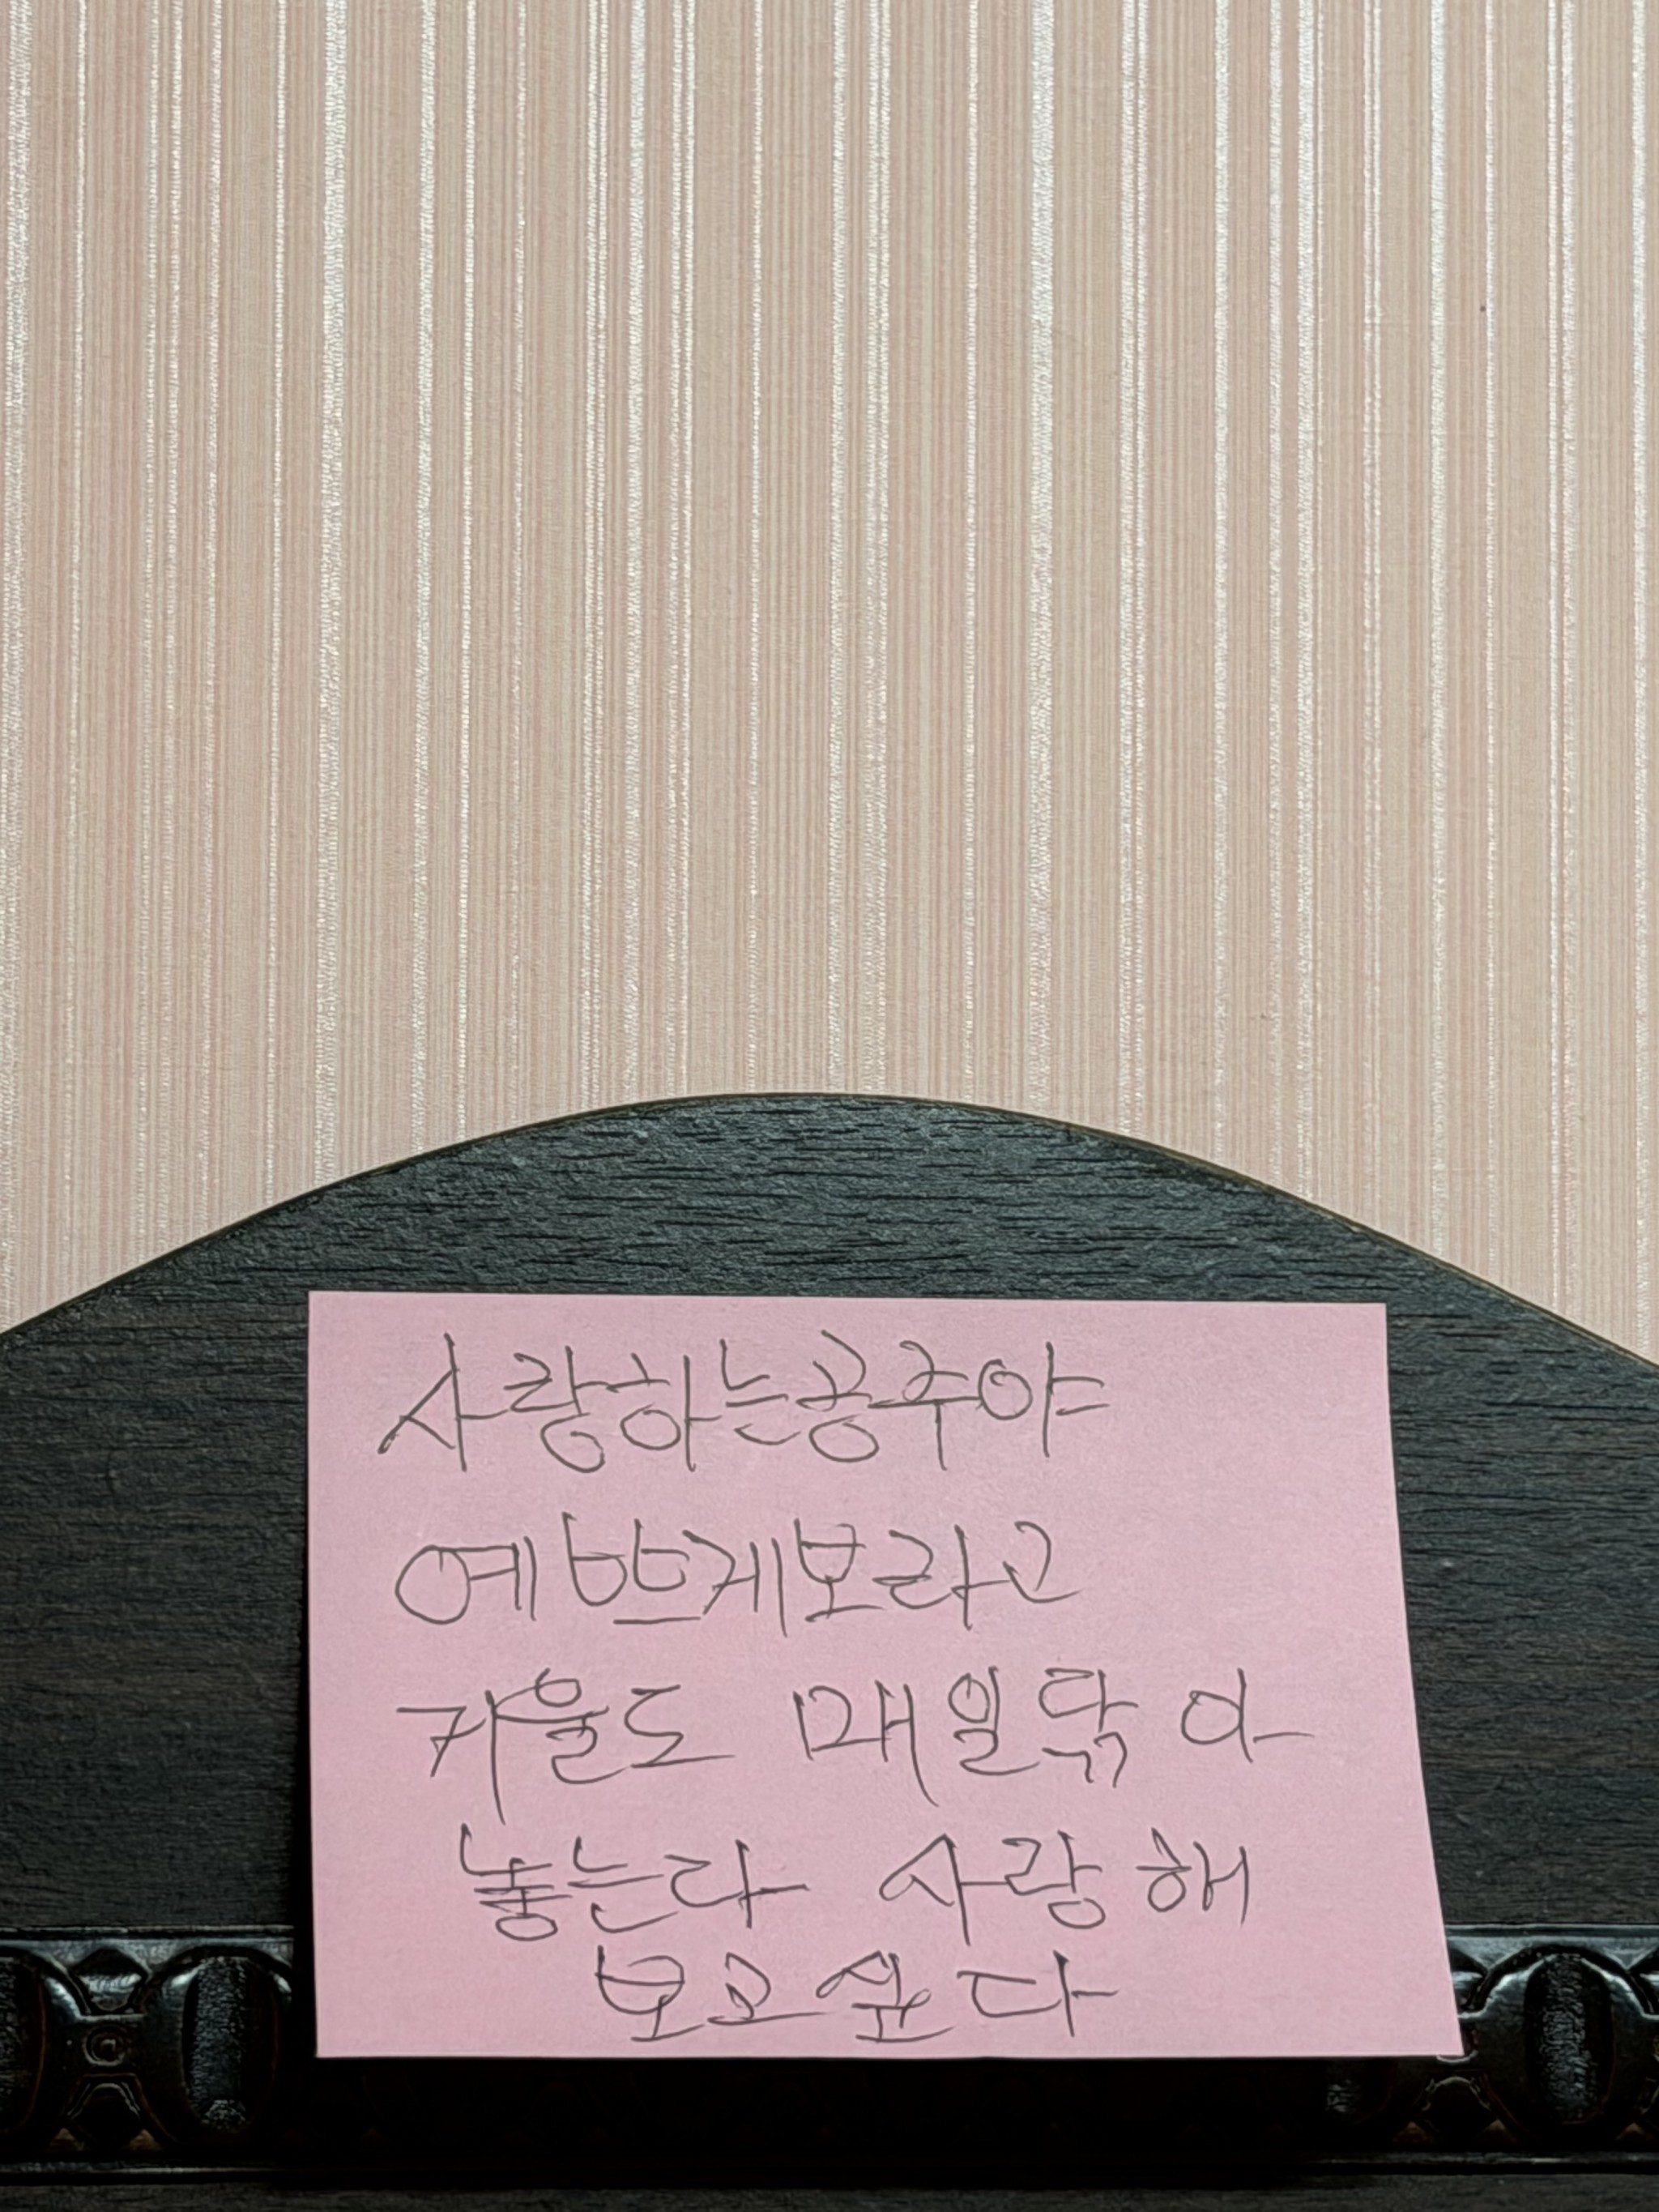 사랑하는공주야
예쁘게보라고
거울도 매일닦아
놓는다 사랑해
보고싶다